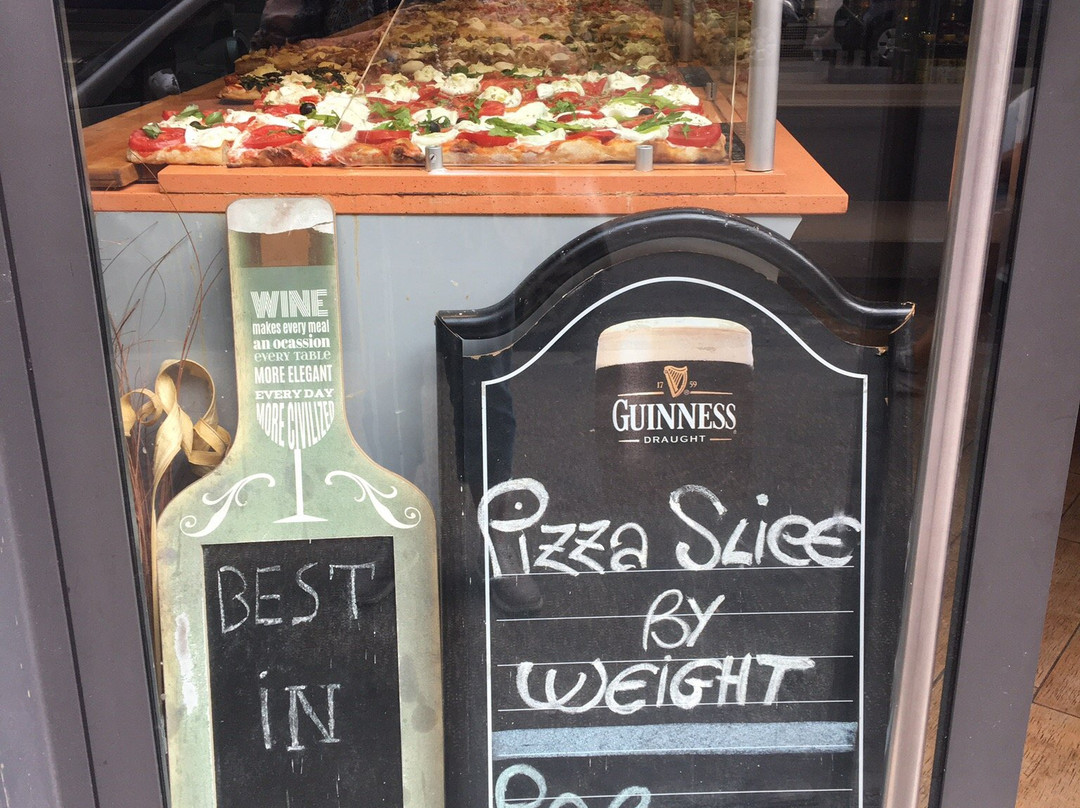 WINE
makes every meal
an ocassion
EVERY TABLE
MORE ELEGANT
EVERY DAY
MORE CIVILIZED
BEST
iN
17 59
GUINNESS
DRAUGHT
Pizza Slice
By
WEiGHT